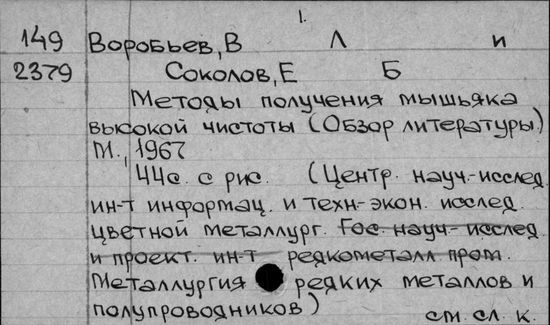 1.
149 Воробьев, В Л и
2379 Соколов, Е Б
Методы получения мышьяка
высокой чистоты (Обзор литературы)
М., 1967
44с. с рис. (Центр. науч.-исслед.
ин-т информац. и техн-экон. исслед.
цветной металлург. Гос. науч-исслед.
и проект. ин-т редкометалл пром.
Металлургия редких металлов и
полупроводников)
см. сл. к.